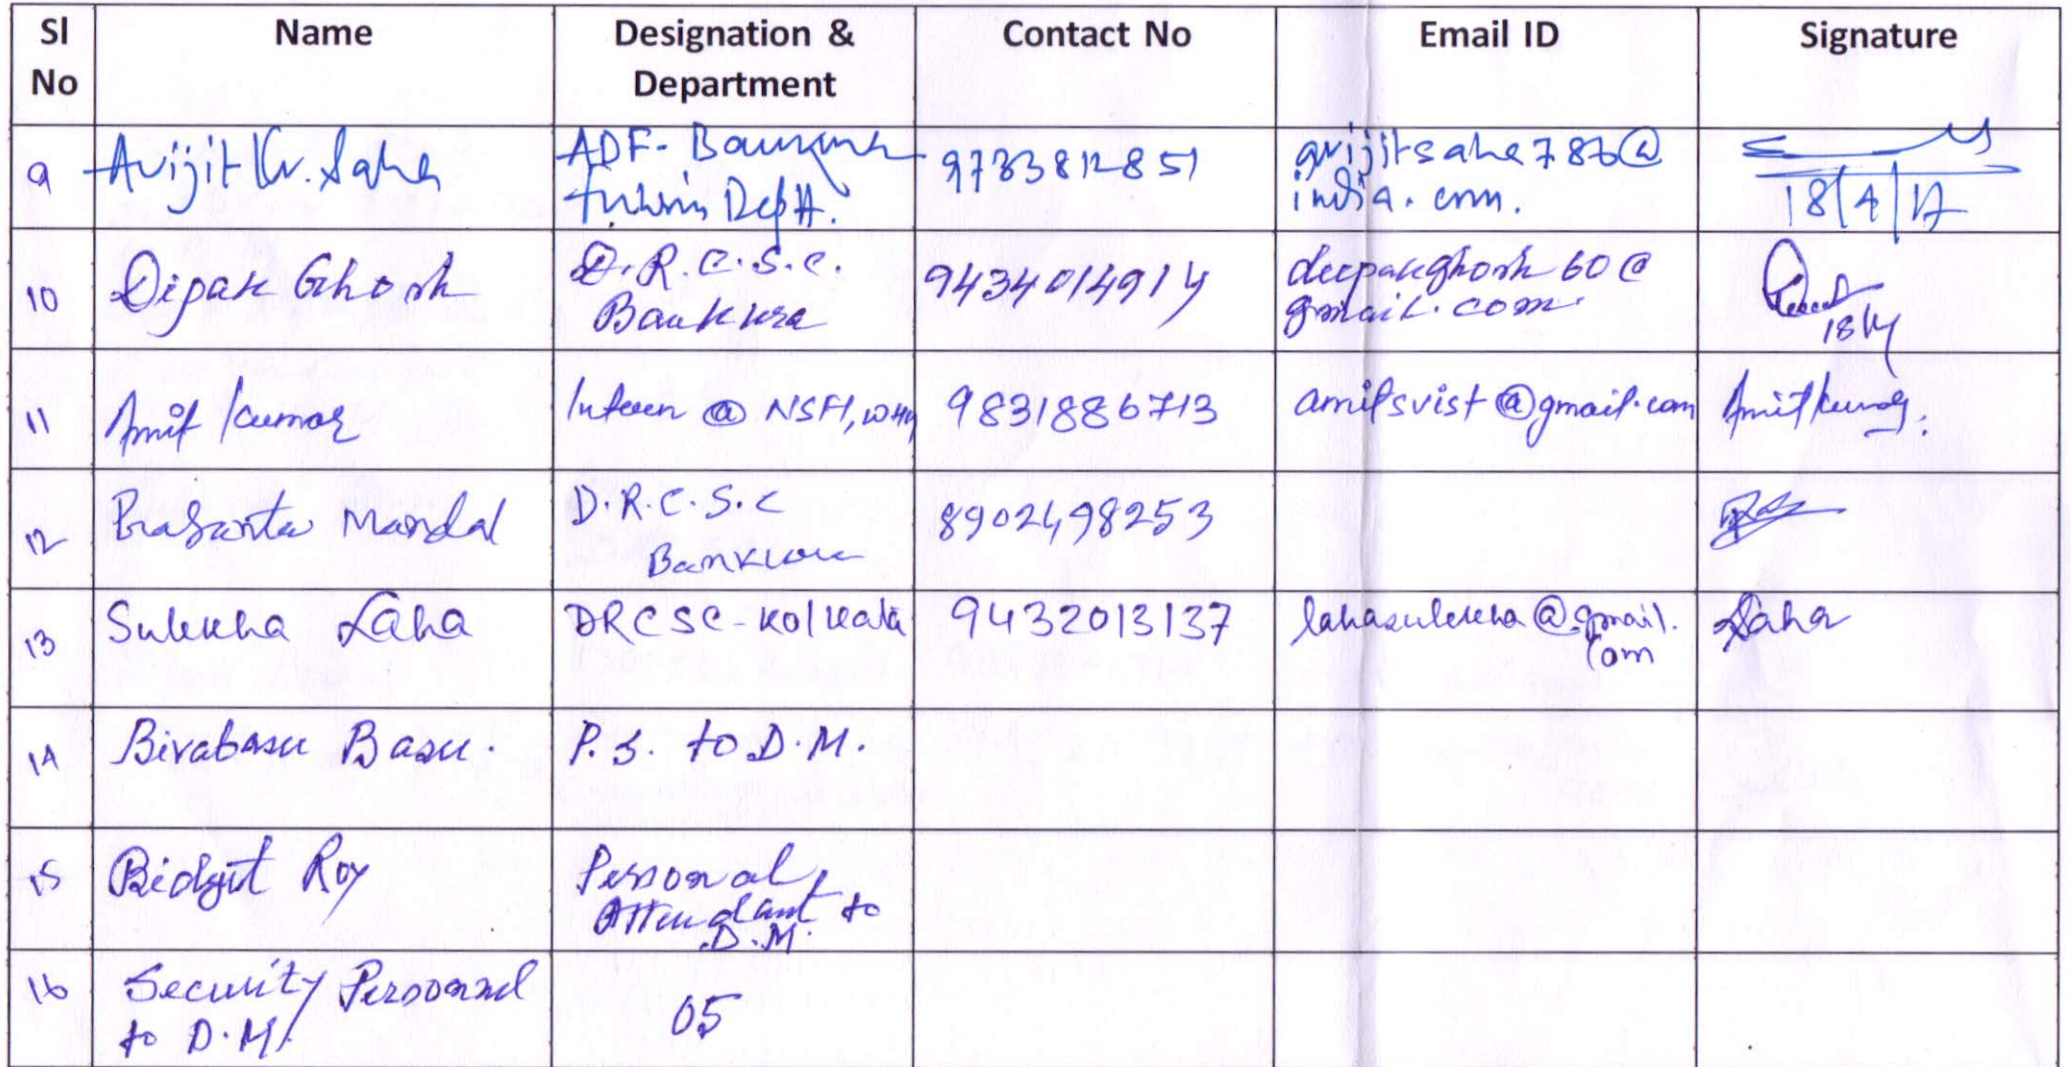 Sl No Name Designation & Department Contact No Email ID Signature
9 Avijit Kr. Saha ADF- Bankura 9733812851 avijitsaha786@
Dept. india.com. 18/4/17
10 Dipak Ghosh D.R.C.S.C. 9434014914 deepakghosh60@
Bankura gmail.com 18/4
11 Amit Kumar Intern @ 9831886713 amitsvist@gmail.com Amit Kumar.
12 Prasanta Mandal D.R.C.S.C 8902498253
Bankura
13 Sulekha Laha DRCSC-Kolkata 9432013137 lahasulekha@gmail. Laha
com
14 Bivabasu Basu. P.S. to D.M.
15 Bidyut Roy Personal
Attendant to
D.M.
16 Security Personnel 05
to D.M.